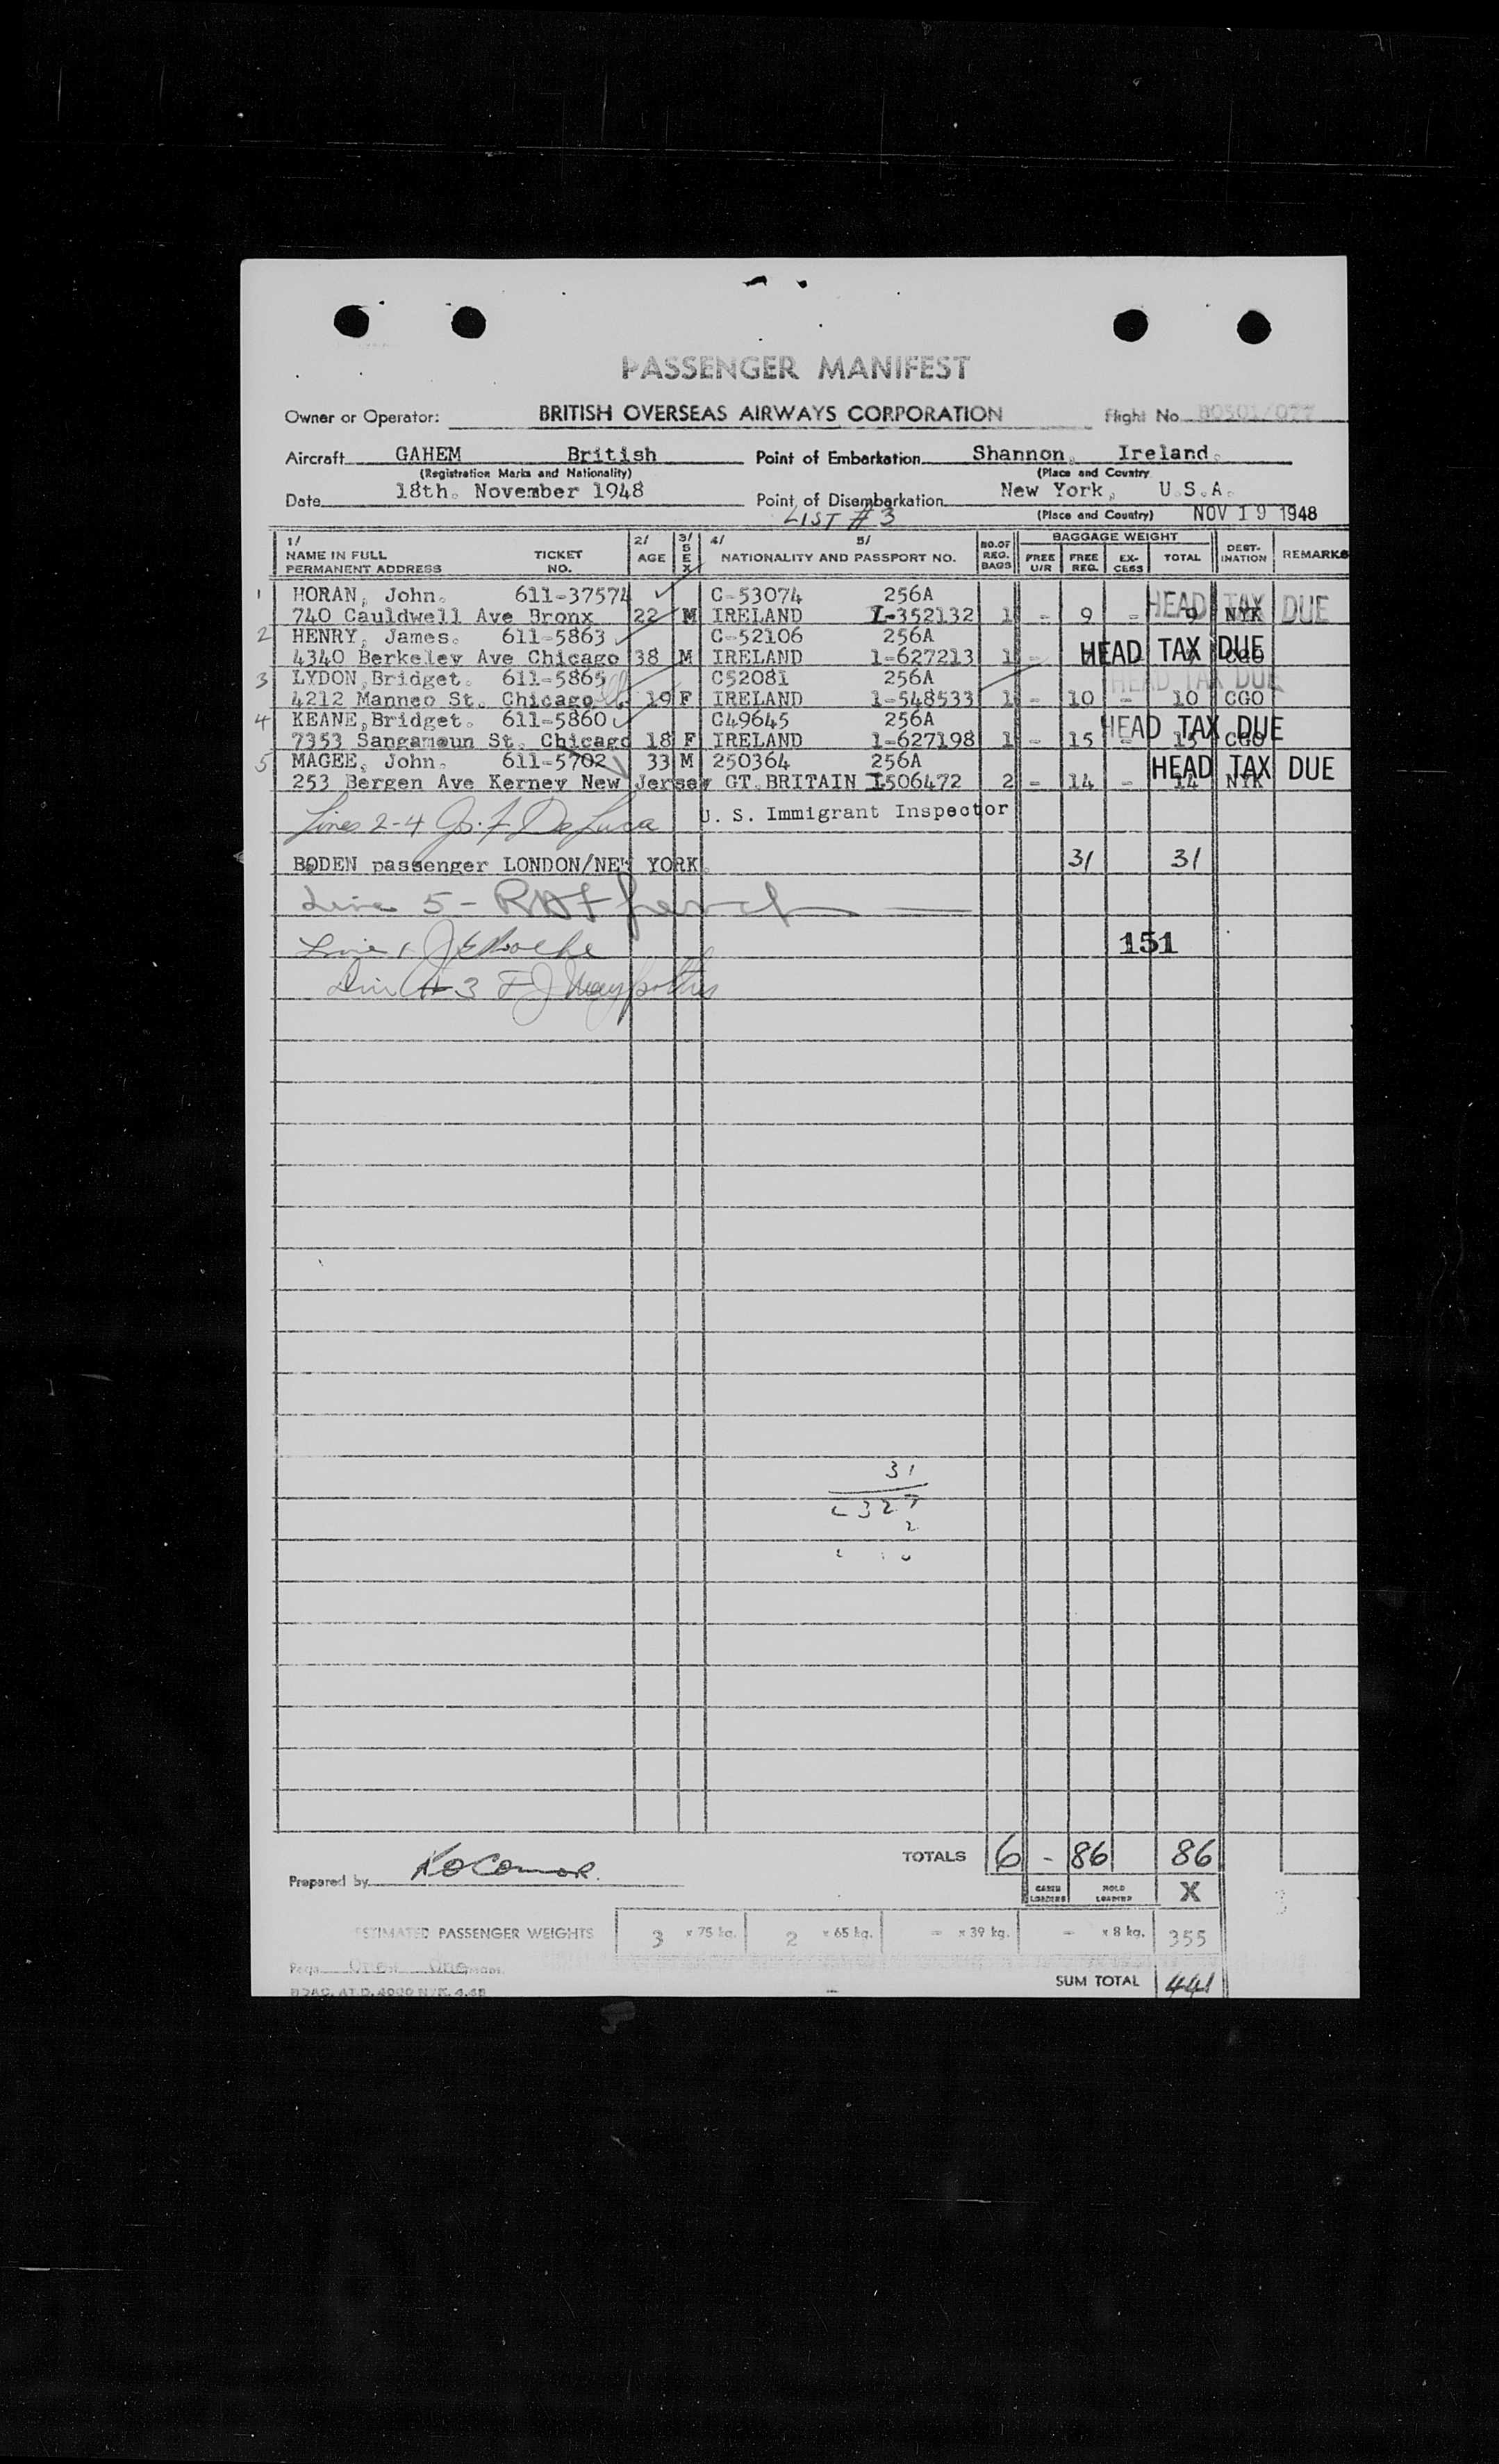 PASSENGER MANIFEST
Owner or Operator: BRITISH OVERSEAS AIRWAYS CORPORATION Flight No BO501/077
Aircraft GAHEM British Point of Embarkation Shannon, Ireland.
(Registration Marks and Nationality) (Place and Country
Date 18th. November 1948 Point of Disembarkation New York, U.S.A.
LIST # 3 (Place and Country) NOV 19 1948
1/ 2/ 3/ 4/ 5/ BAGGAGE WEIGHT
NAME IN FULL PERMANENT ADDRESS TICKET NO. AGE SEX NATIONALITY AND PASSPORT NO. NO.OF REG. BAGS FREE U/R FREE REG. EX- CESS TOTAL DEST- INATION REMARKS
1 HORAN, John. 611-37574 C-53074 256A HEAD TAX DUE
740 Cauldwell Ave Bronx 22 M IRELAND I-352132 1 - 9 - 9 NYK
2 HENRY, James. 611-5863 C-52106 256A
4340 Berkeley Ave Chicago 38 M IRELAND 1-627213 1 - HEAD TAX DUE CGO
3 LYDON, Bridget. 611-5865 C52081 256A HEAD TAX DUE
4212 Manneo St. Chicago 19 F IRELAND 1-548533 1 - 10 - 10 CGO
4 KEANE, Bridget. 611-5860 C49645 256A HEAD TAX DUE
7353 Sangamoun St. Chicago 18 F IRELAND 1-627198 1 - 15 - 15 CGO
5 MAGEE, John. 611-5702 33 M 250364 256A HEAD TAX DUE
253 Bergen Ave Kerney New Jersey GT.BRITAIN I506472 2 - 14 - 14 NYK
Lines 2-4 Jos. F. DeLuca U. S. Immigrant Inspector
BODEN passenger LONDON/NEW YORK. 31 31
Line 5 -
Line 1. J Roche 151
Line # 3 F J
31
2
TOTALS 6 - 86 86
Prepared by K O Connor.
CABIN LOADERS HOLD LOADER X
ESTIMATED PASSENGER WEIGHTS 3 x 75 kg. 2 x 65 kg. - x 39 kg. - x 8 kg. 355
Page One of One pages
SUM TOTAL 441